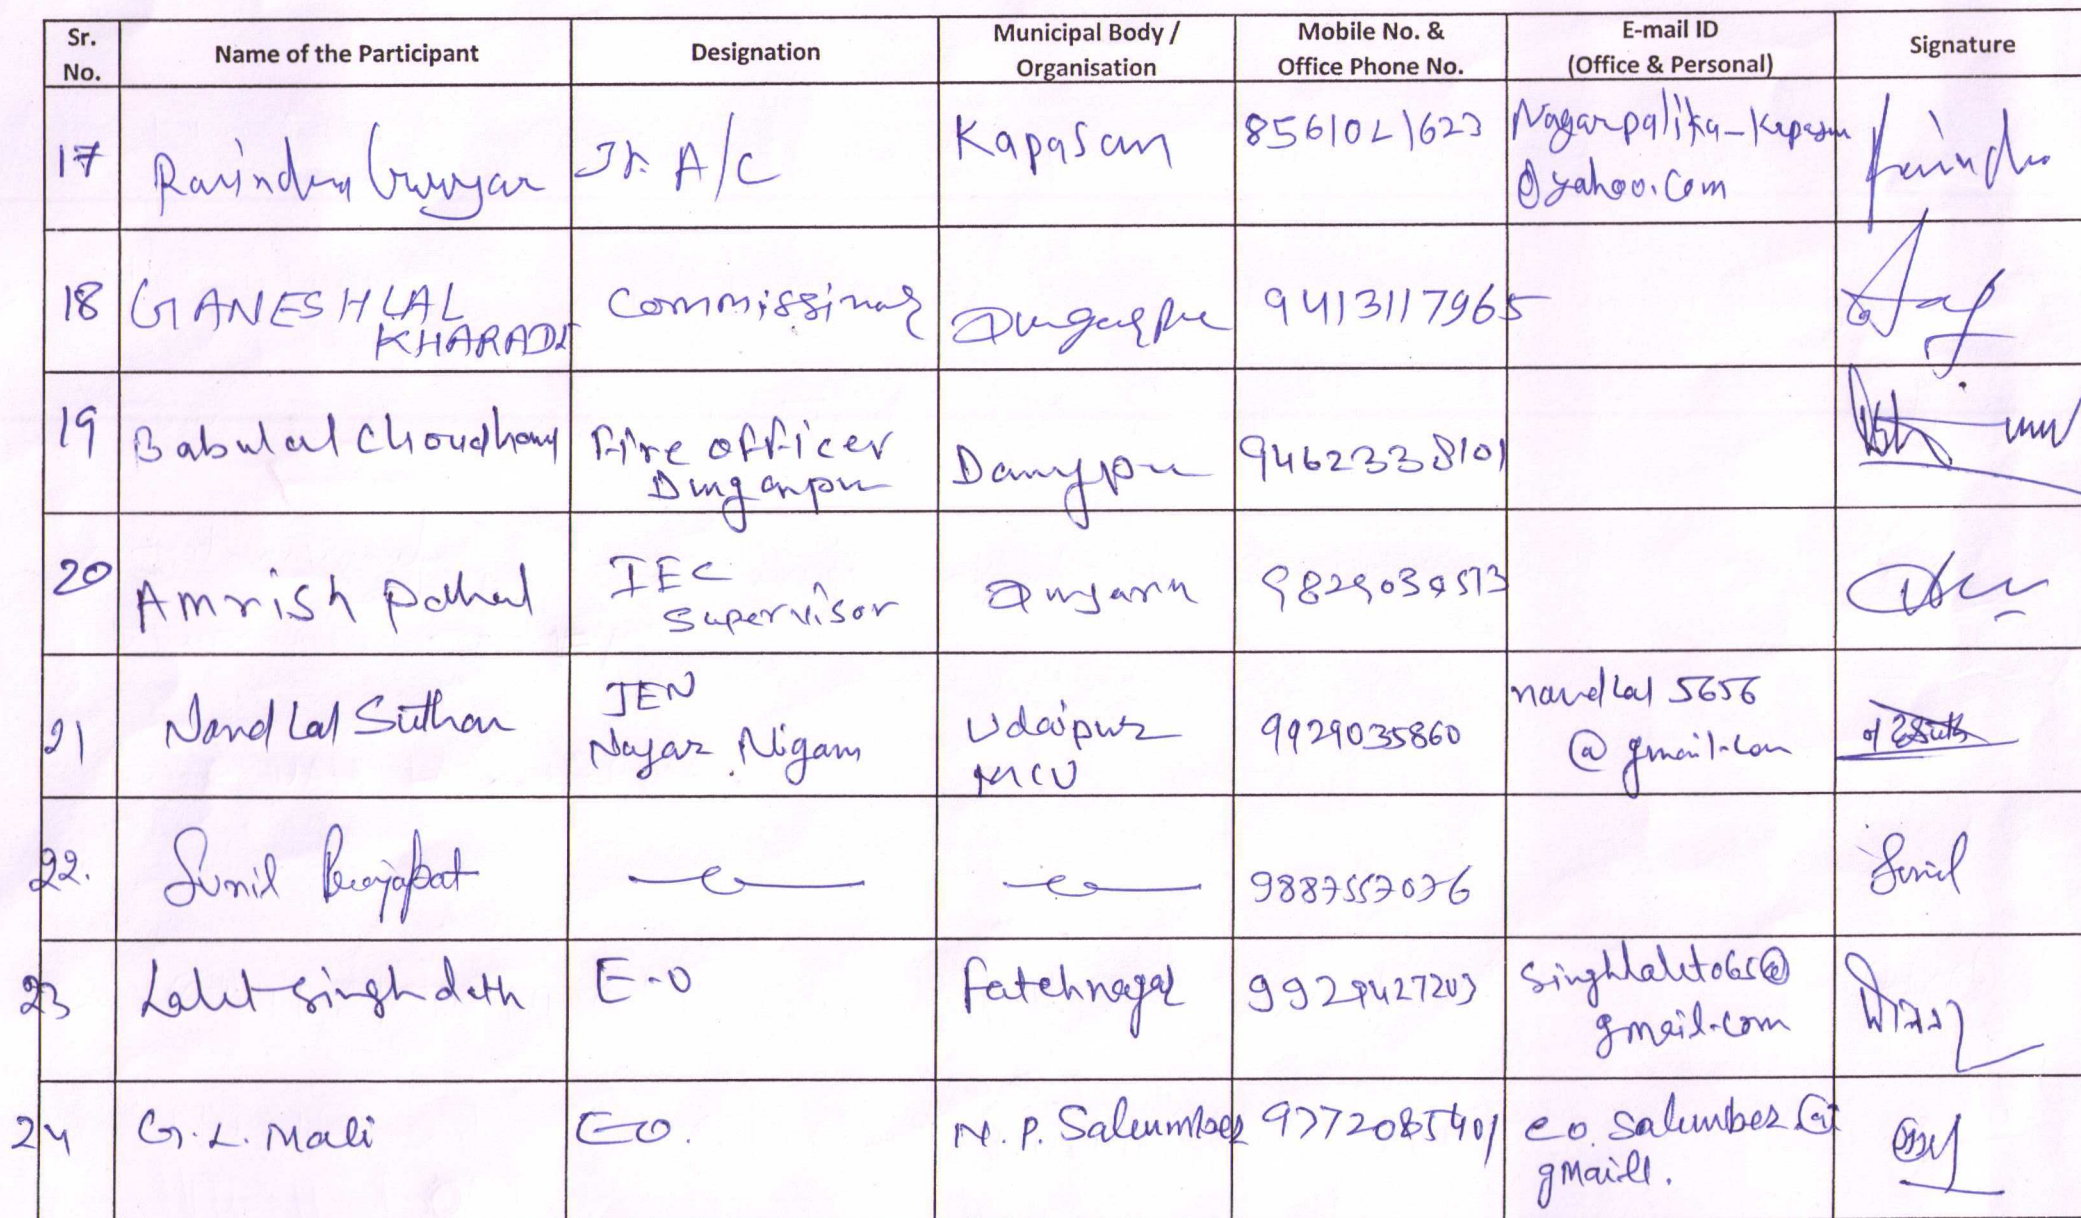 Sr. No. Name of the Participant Designation Municipal Body / Organisation Mobile No. & Office Phone No. E-mail ID (Office & Personal) Signature
17 Ravindra Gurjar Jr. A/C Kapasan 8561021623 Nagarpalika-Kapasan
@yahoo.com
18 GANESH LAL Commissinar 9413117965
KHARADI
19 Babulal Choudhary Fire officer 9462338101
Dungarpur
20 Amrish IEC
Supervisor
21 Nand Lal Suthar JEN Udaipur 9929035860 nandlal 5656
Nagar Nigam @gmail.com
22. Sunil Prajapat 9887557076 Sunil
23 Lalit singh E-O Fatehnagar 9929427203 singhlalit065@
gmail.com
24 G.L. Mali EO. N.P. Salumber eo.salumber@
gmaill.